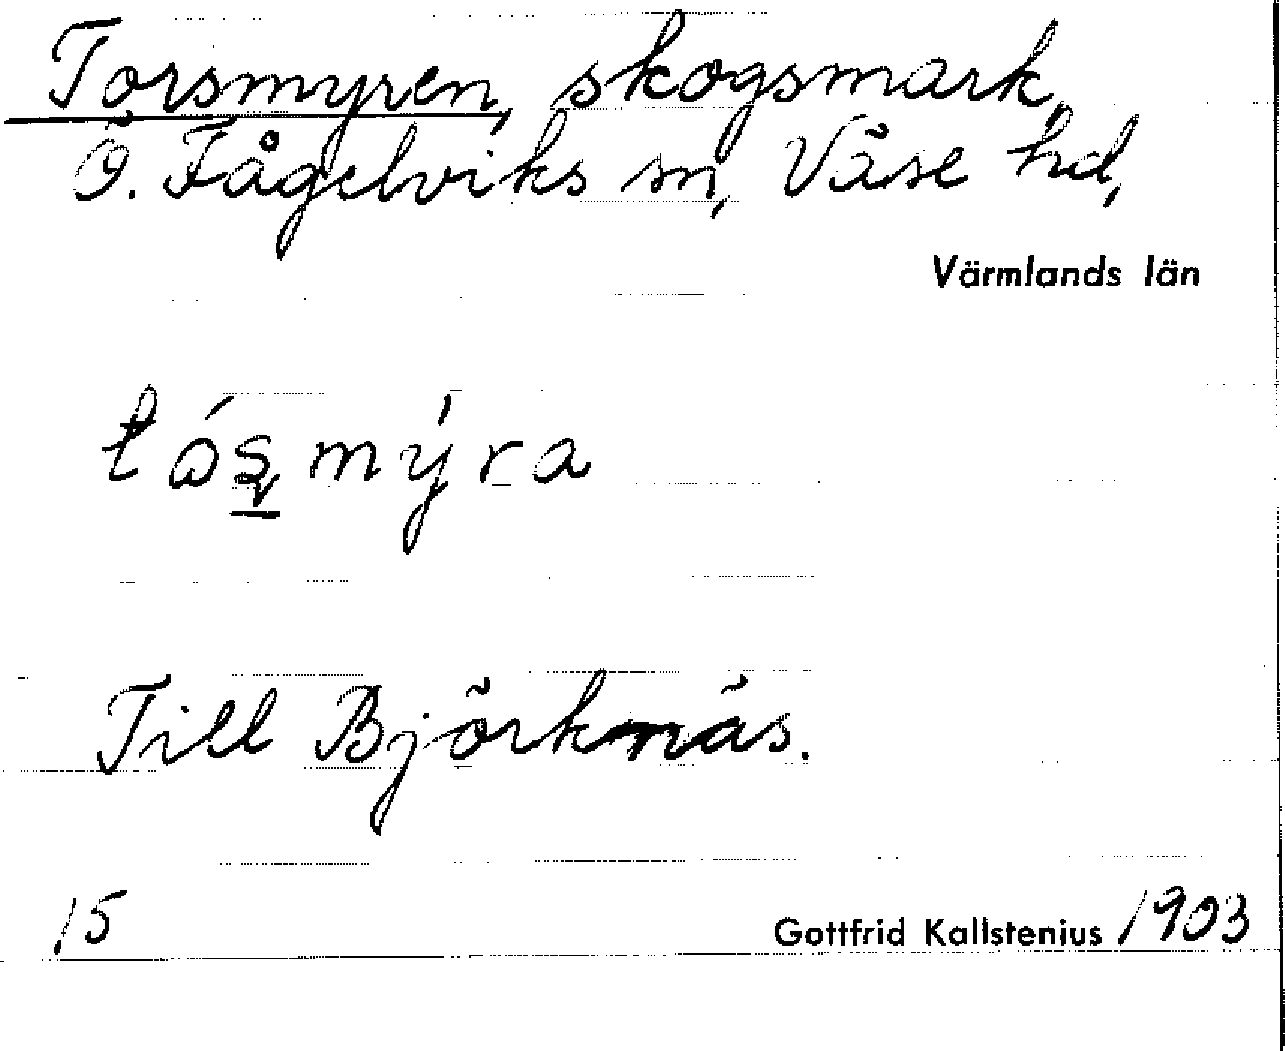 Torsmyren, skogsmark,
Ö. Fågelviks sn, Väse hd,
Värmlands län
tósmýra
Till Björknäs.
15
Gottfrid Kallstenius 1903